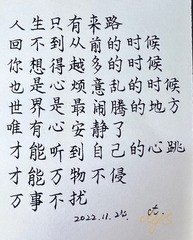 人生只有来路
回不到从前的时候
你想得越多的时候
也是心烦意乱的时候
世界是最闹腾的地方
唯有心安静了
才能听到自己的心跳
才能万物不侵
万事不扰
2022.11.22.